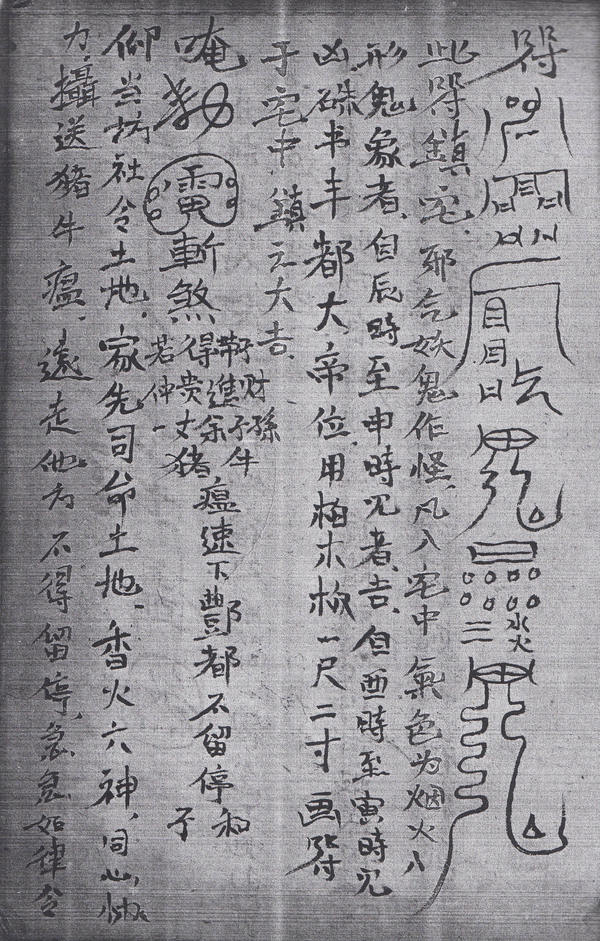 符
此符鎮宅邪气妖鬼作怪,凡入宅中氣色为烟火人
形鬼象者,自辰時至申時见者,吉,自酉時至寅時见
凶,硃书丰都大帝位,用柏木板一尺二寸画符
于宅中,鎮之大吉,
唵勅雷斬煞
猪牛瘟速下酆都不留停
仰当坊社令土地,家先司命土地,香火六神,同心
力,攝送豬牛瘟,遠走他方不得留停,急急如律令